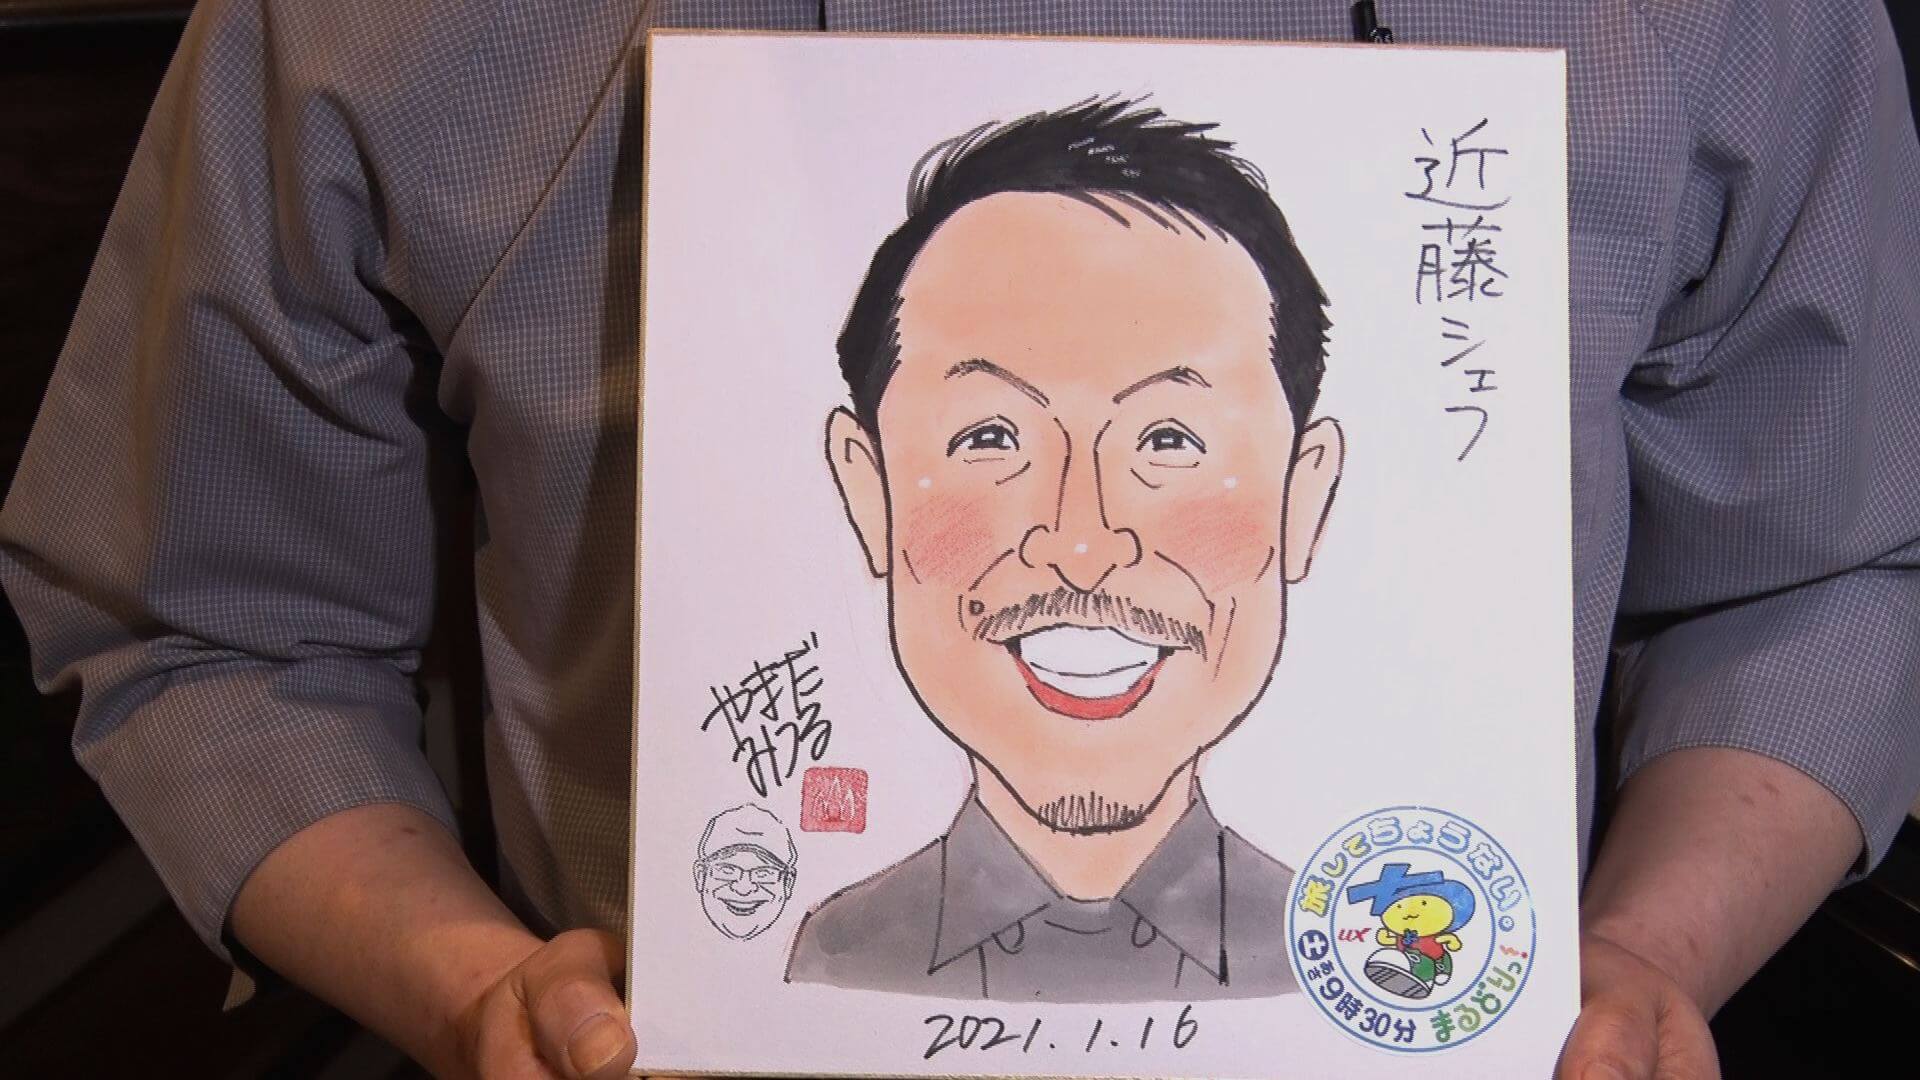 近藤シェフ
やまだ
みつる
2021.1.16
旅してちょうない。
UX
土
あさ9時30分
まるどりっ!